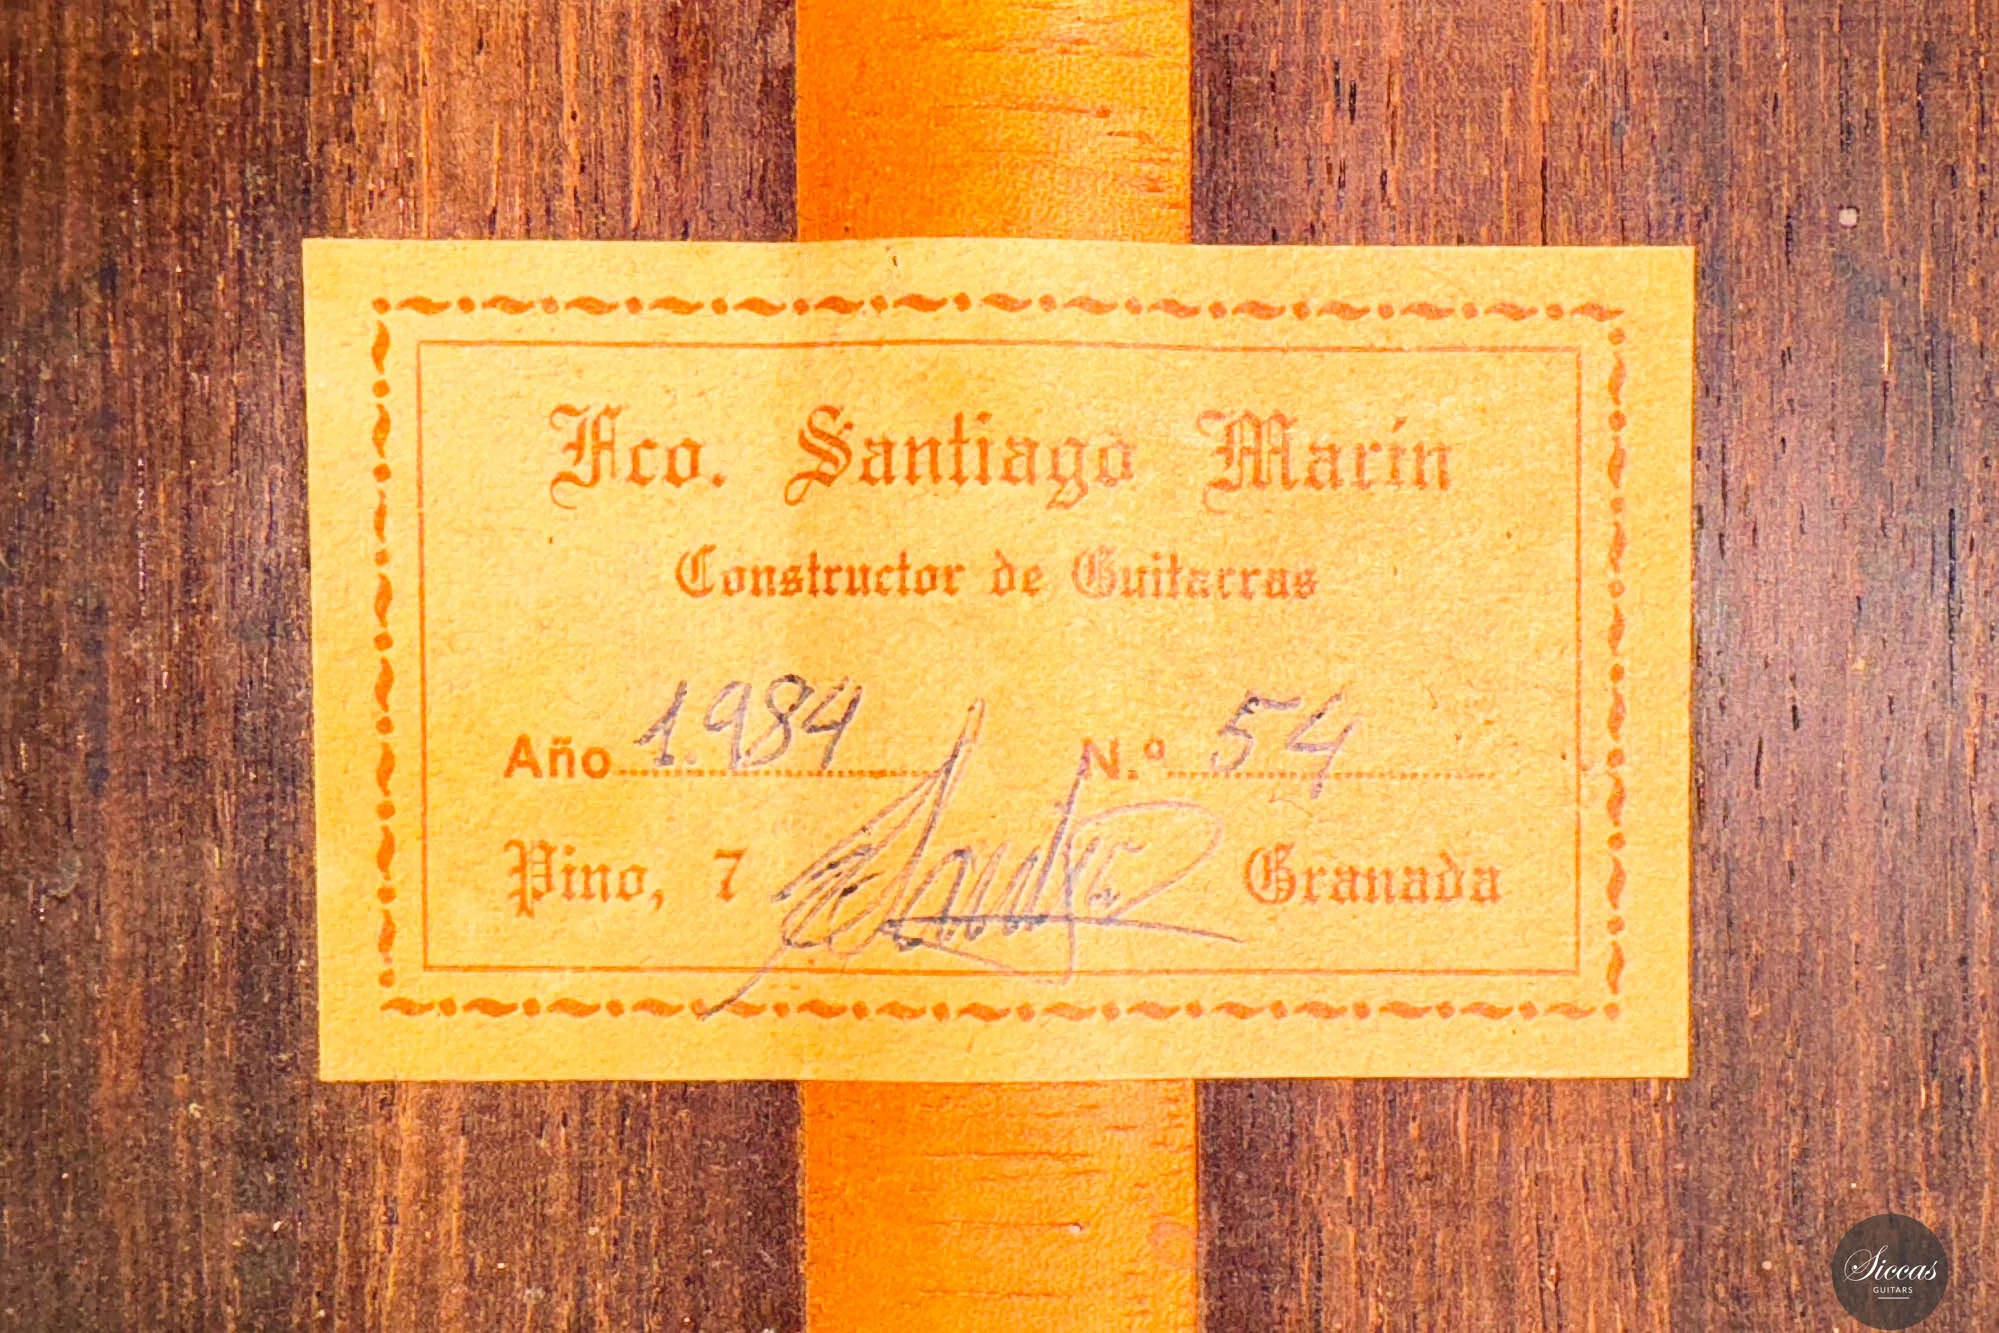 Fco. Santiago Marín
Constructor de Guitarras
Año 1.984 N.º 54
Pino, 7 Granada
Siccas
GUITARS